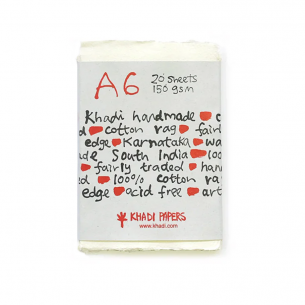 A6 20 sheets
150 gsm
Khadi handmade
cotton rag fairl
edge Karnataka wa
de South India 100
fairly traded han
100% cotton rag
edge acid free art
KHADI PAPERS
www.khadi.com